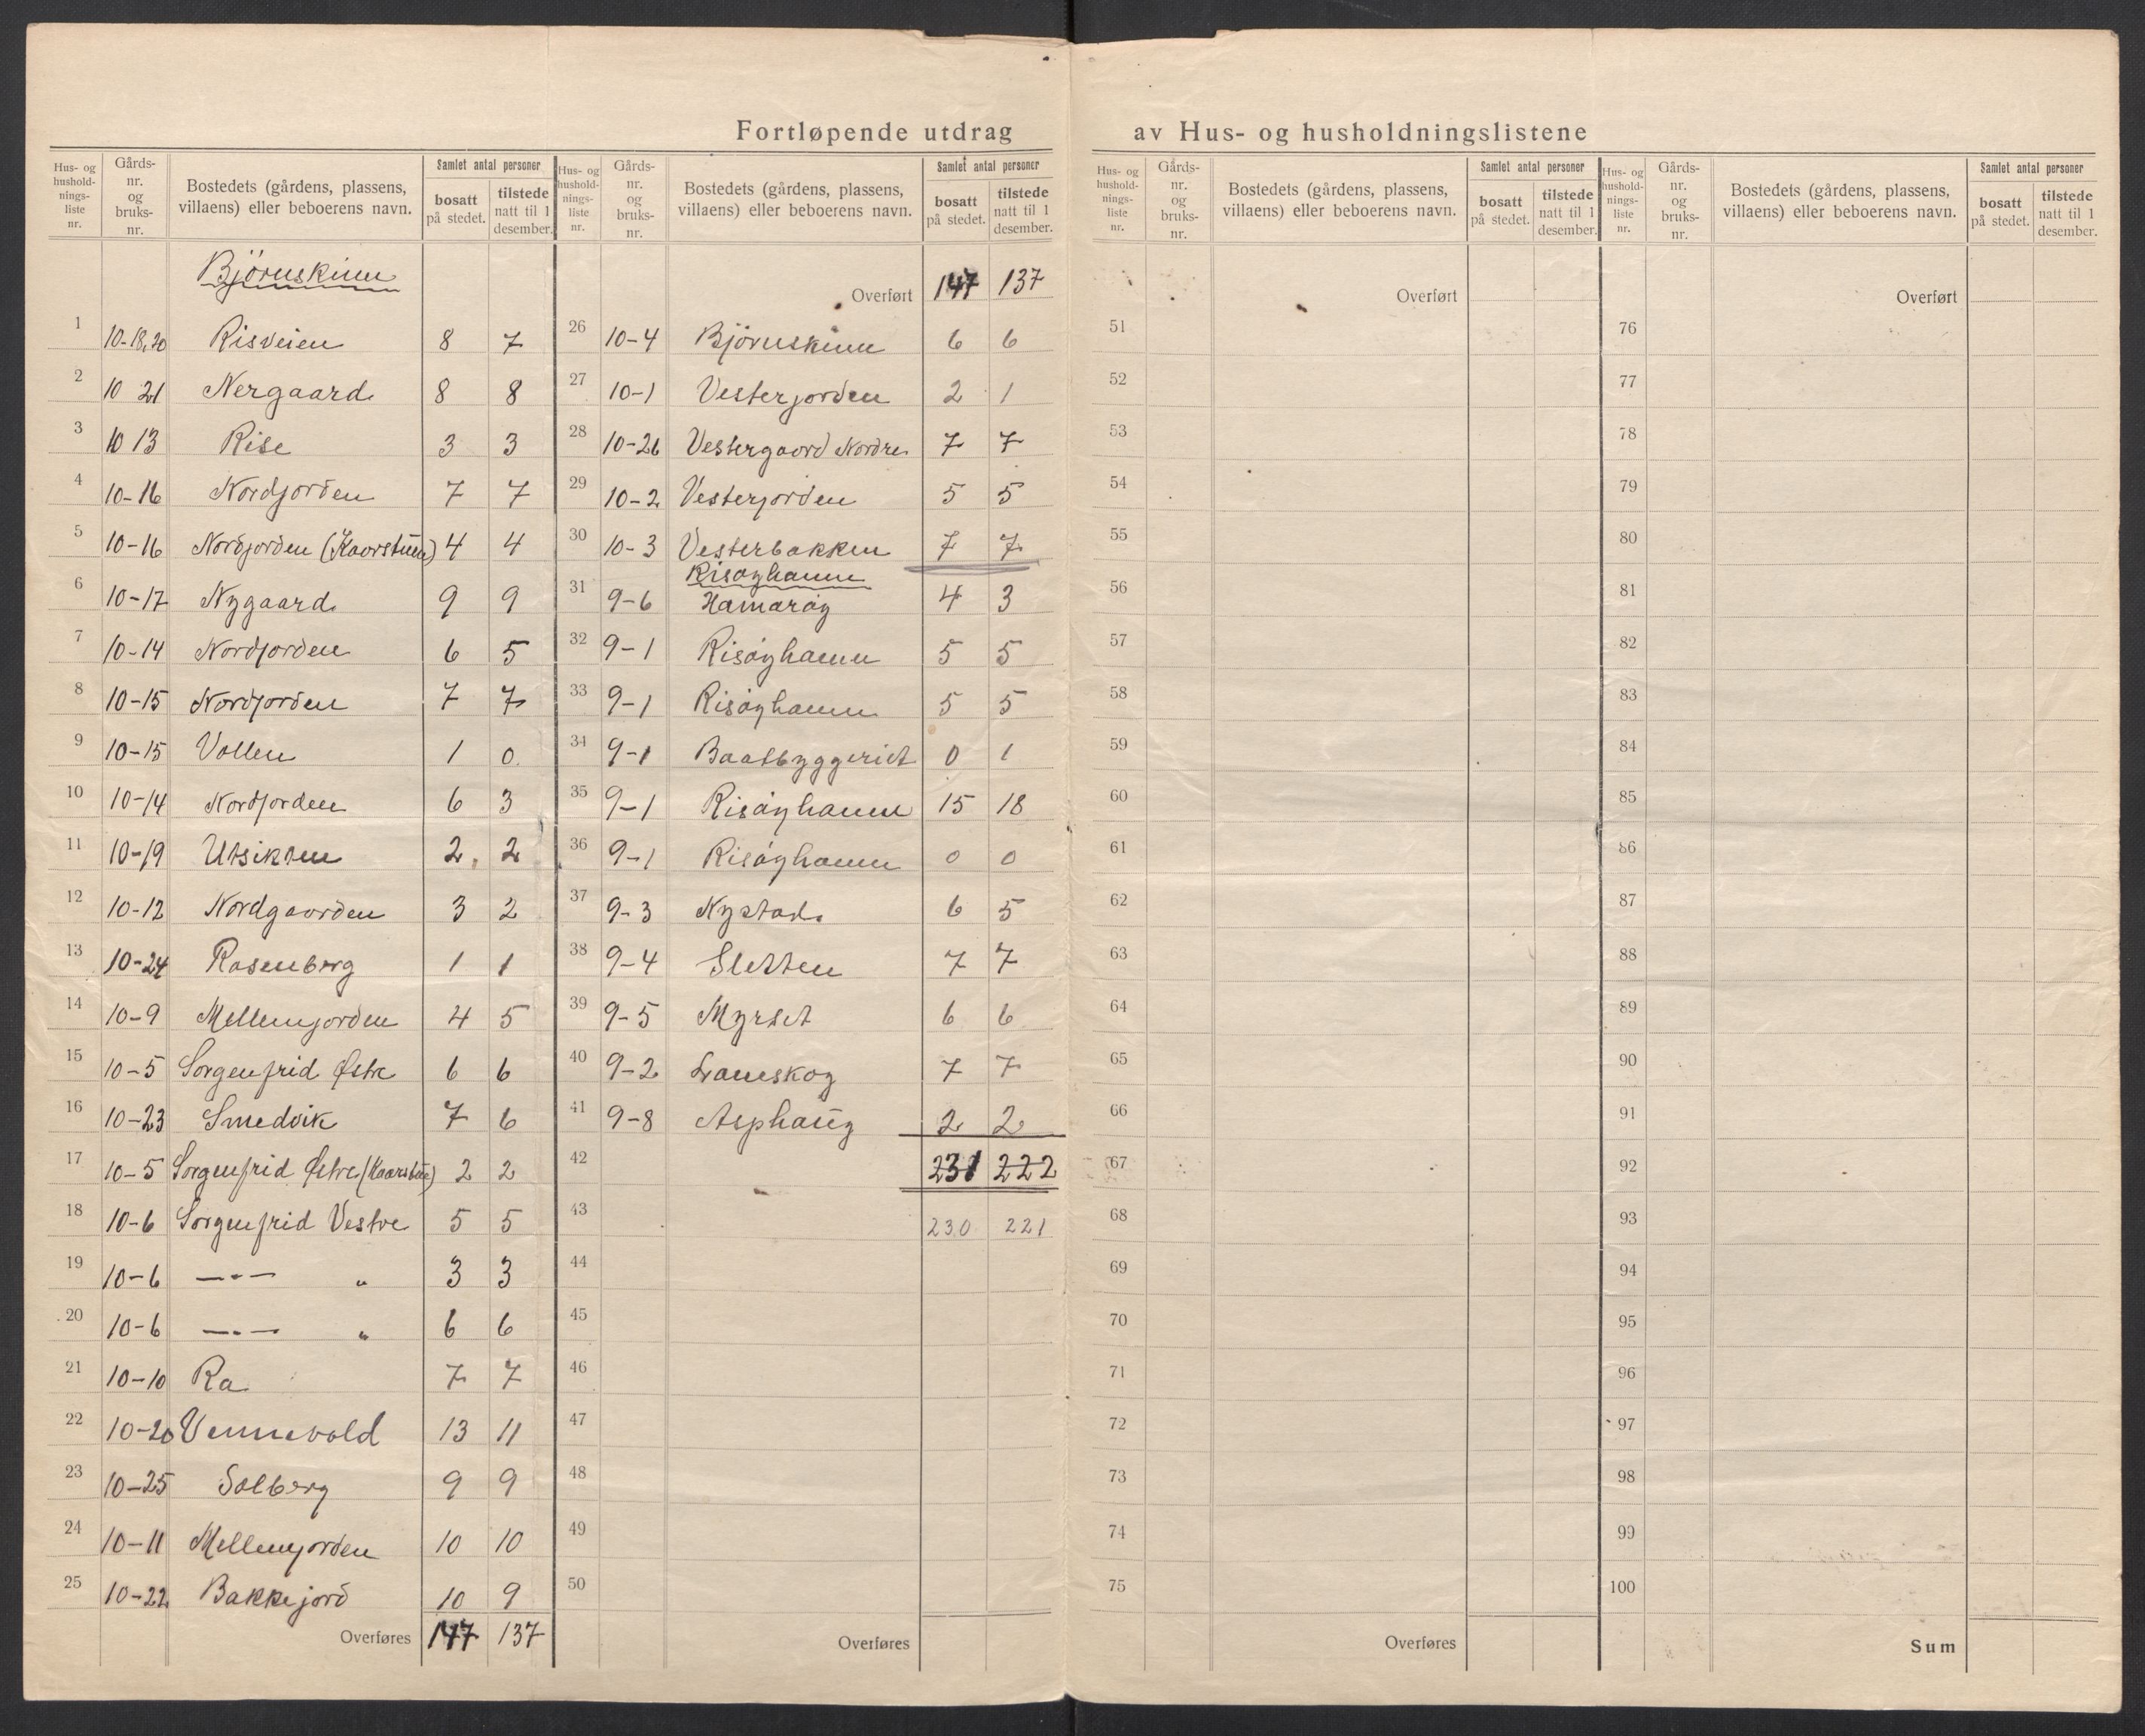 Fortløpende utdrag av Hus- og husholdningslistene
Hus- og hushold-nings-liste nr. Gårds-nr. og bruks-nr. Bostedets (gårdens, plassens, villaens) eller beboerens navn. Samlet antal personer bosatt på stedet. tilstede natt til 1 desember.
Björnskinn
1 10-18,20 Risveien 8 7
2 10 21 Nergaard 8 8
3 10 13 Rise 3 3
4 10-16 Nordjorden 7 7
5 10-16 Nordjorden (Kaarstuen) 4 4
6 10-17 Nygaard 9 9
7 10-14 Nordjorden 6 5
8 10-15 Nordjorden 7 7
9 10-15 Vollen 1 0
10 10-14 Nordjorden 6 3
11 10-19 Utsikten 2 2
12 10-12 Nordgaarden 3 2
13 10-24 Rosenberg 1 1
14 10-9 Mellemjorden 4 5
15 10-5 Sorgenfrid Østre 6 6
16 10-23 Smedvik 7 6
17 10-5 Sorgenfrid Østre (Kaarstue) 2 2
18 10-6 Sorgenfrid Vestre 5 5
19 10-6 —"— " 3 3
20 10-6 —"— " 6 6
21 10-10 Ra 7 7
22 10-20 Vennevold 13 11
23 10-25 Solberg 9 9
24 10-11 Mellemjorden 10 10
25 10-22 Bakkejord 10 9
Overføres 147 137
Hus- og hushold-nings-liste nr. Gårds-nr. og bruks-nr. Bostedets (gårdens, plassens, villaens) eller beboerens navn. Samlet antal personer bosatt på stedet. tilstede natt til 1 desember.
Overført 147 137
26 10-4 Björnskinn 6 6
27 10-1 Vesterjorden 2 1
28 10-26 Vestergaard Nordre 7 7
29 10-2 Vesterjorden 5 5
30 10-3 Vesterbakken 7 7
Risøyhamn
31 9-6 Hamarøy 4 3
32 9-1 Risøyhamn 5 5
33 9-1 Risøyhamn 5 5
34 9-1 Baatbyggeriet 0 1
35 9-1 Risøyhamn 15 18
36 9-1 Risøyhamn 0 0
37 9-3 Nystad 6 5
38 9-4 Sletten 7 7
39 9-5 Myrset 6 6
40 9-2 Laneskog 7 7
41 9-8 Asphaug 2 2
42 231 222
43 230 221
44
45
46
47
48
49
50
Overføres
Hus- og hushold-nings-liste nr. Gårds-nr. og bruks-nr. Bostedets (gårdens, plassens, villaens) eller beboerens navn. Samlet antal personer bosatt på stedet. tilstede natt til 1 desember.
Overført
51
52
53
54
55
56
57
58
59
60
61
62
63
64
65
66
67
68
69
70
71
72
73
74
75
Overføres
Hus- og hushold-nings-liste nr. Gårds-nr. og bruks-nr. Bostedets (gårdens, plassens, villaens) eller beboerens navn. Samlet antal personer bosatt på stedet. tilstede natt til 1 desember.
Overført
76
77
78
79
80
81
82
83
84
85
86
87
88
89
90
91
92
93
94
95
96
97
98
99
100
Sum